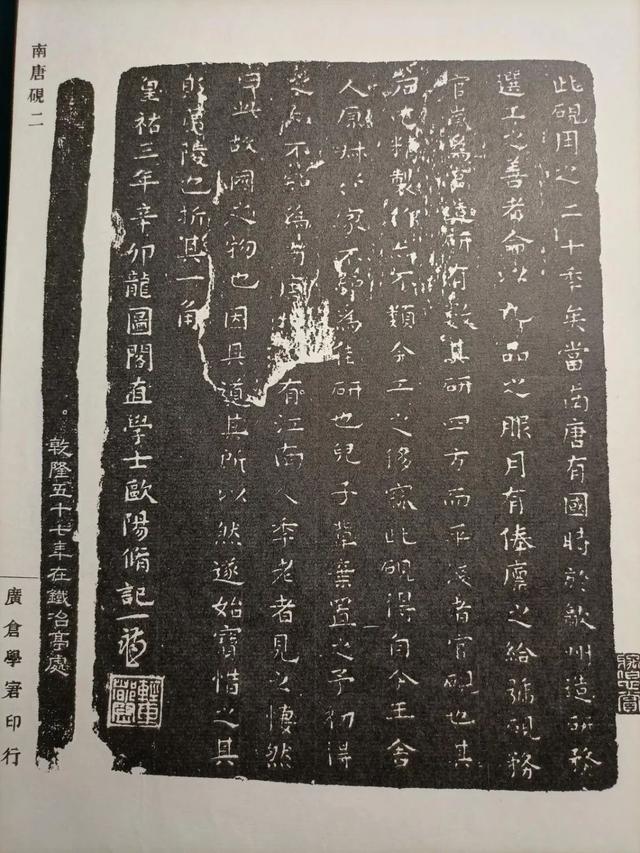 此硯用之二十季矣當南唐有國時於歙州造研務
選工之善者命以九品之服月有俸廩之給號硯務
官歲為官造研有數其研四方而平淺者官硯也其
石尤精製作亦不類今工之侈窳此硯得自今王舍
人原叔家不識為佳研也兒子輩棄置之予初得
之亦不知為有江南人年老者見之悽然
曰此故國之物也因具道其所以然遂始寶惜之其
貶夷陵也折其一角
皇祐三年辛卯龍圖閣直學士歐陽脩記
乾隆五十七年在鐵冶亭處
南唐硯二
廣倉學宭印行